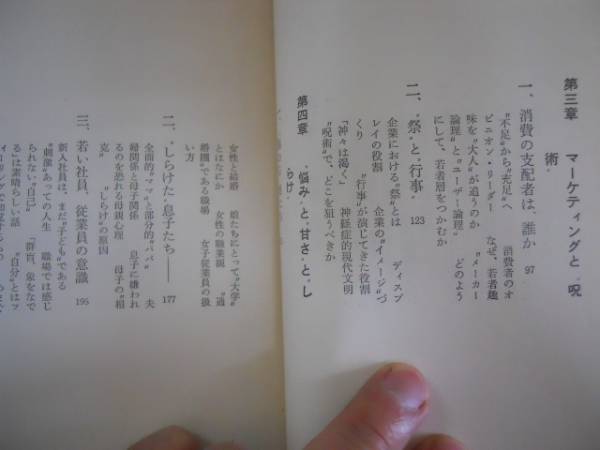 第三章 マーケティングと〝呪
術〟
一、消費の支配者は、誰か 97
〝不足〟から〝充足〟へ 消費者のオ
ピニオン・リーダー なぜ、若者趣
味を〝大人〟が追うのか 〝メーカー
論理〟と〝ユーザー論理〟 どのよう
にして、若者層をつかむか
二、〝祭〟と〝行事〟 123
企業における〝祭〟とは ディスプ
レイの役割 企業の〝イメージ〟づ
くり 〝行事〟が演じてきた役割
「神々は渇く」 神経症的現代文明
〝呪術〟で、どこを狙うべきか
第四章 〝悩み〟と〝甘さ〟と〝し
らけ〟
女性と結婚 娘たちにとって〝大学〟
とはなにか 女性の職業観 〝適
婚圏〟である職場 女子従業員の扱
い方
二、〝しらけた〟息子たち―― 177
全面的〝ママ〟と部分的〝パパ〟 夫
婦関係と母子関係 息子に嫌われ
るのを恐れる母親心理 母子の〝相
克〟 〝しらけ〟の原因
三、若い社員、従業員の意識 195
新入社員は、まだ〝子ども〟である
〝刺激〟あっての人生 職場では感じ
られない〝自己〟 「群盲、象をなで
る」は素晴らしい話 〝自分〟とはッ